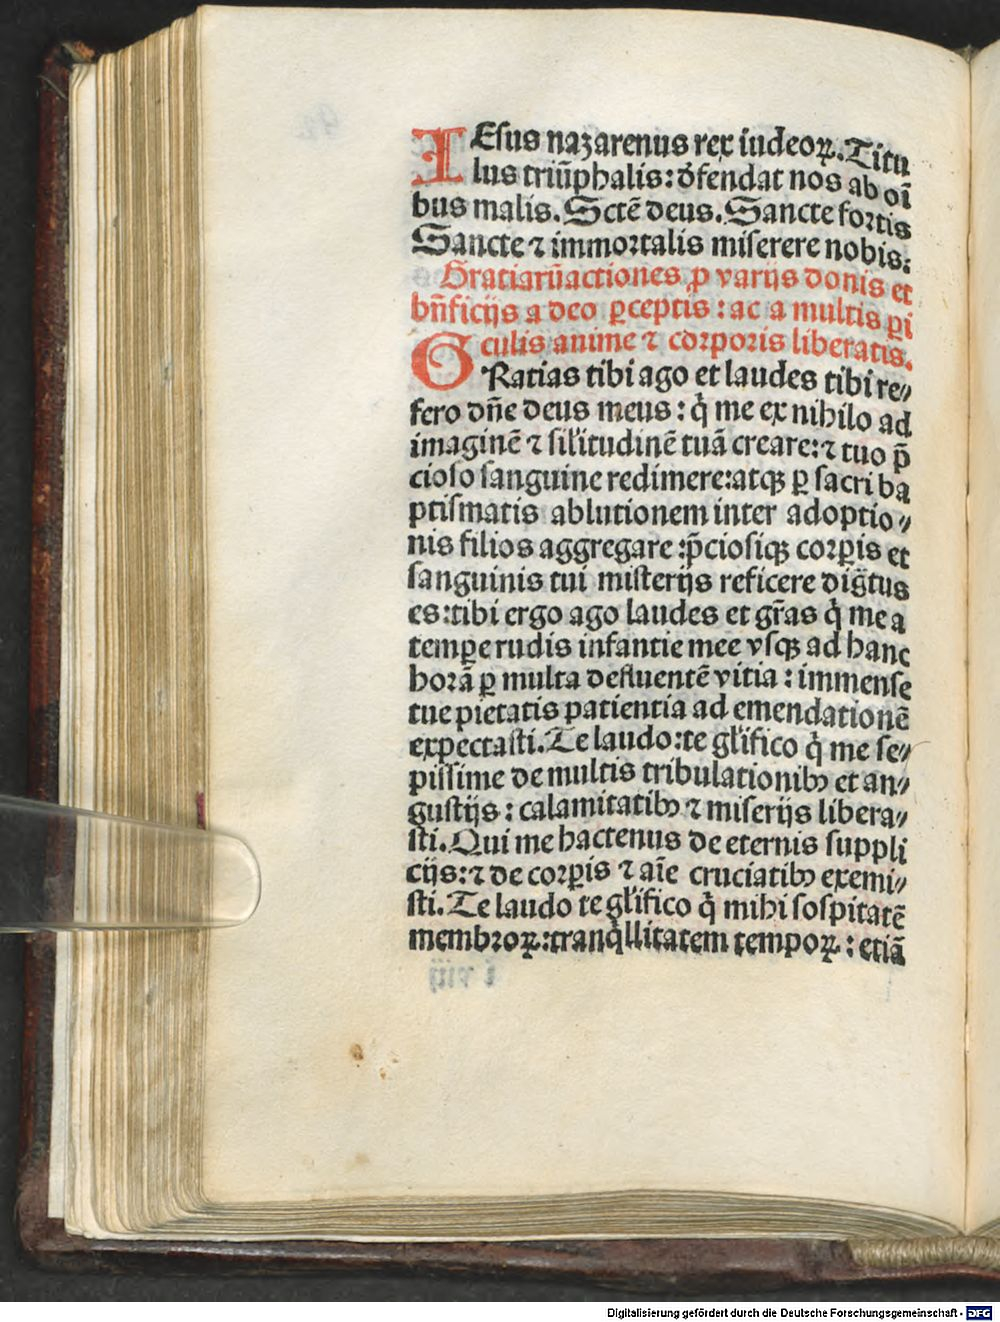 IEſus nazarenus rex iudeoꝝ. Titu
lus triūphalis: ꝺ̓fendat nos ab oī
bus malis. Sctē deus. Sancte fortis
Sancte ⁊ immortalis miſerere nobis.
Gratiarū actiones ꝓ varijs donis et
bn̄ficijs a deo ꝑceptis: ac a multis ꝑi
culis anime ⁊ corporis liberatis.
GRatias tibi ago et laudes tibi re⸗
fero dn̄e deus meus: q̇ me ex nihilo ad
imaginē ⁊ ſiľitudinē tuā creare: ⁊ tuo p̄
cioſo ſanguine redimere: atqꝫ ꝑ ſacri ba
ptiſmatis ablutionem inter adoptio⸗
nis filios aggregare: p̄cioſiqꝫ corꝑis et
ſanguinis tui miſterijs reficere dig̅tus
es: tibi ergo ago laudes et gr̄as q̇ me a
temꝑe rudis infantie mee vſqꝫ ad hanc
horā ꝑ multa defluentē vitia: immenſe
tue pietatis patientia ad emendationē
expectaſti. Te laudo: te gľifico q̇ me ſe⸗
piſſime de multis tribulationibꝫ et an⸗
guſtijs: calamitatibꝫ ⁊ miſerijs libera⸗
ſti. Qui me hactenus de eternis ſuppli
cijs: ⁊ de corꝑis ⁊ aīe cruciatibꝫ exemi⸗
ſti. Te laudo te gľifico q̇ mihi ſoſpitatē
membroꝝ: tranq̇llitatem tempoꝝ: etiā
Digitalisierung gefördert durch die Deutsche Forschungsgemeinschaft - DFG